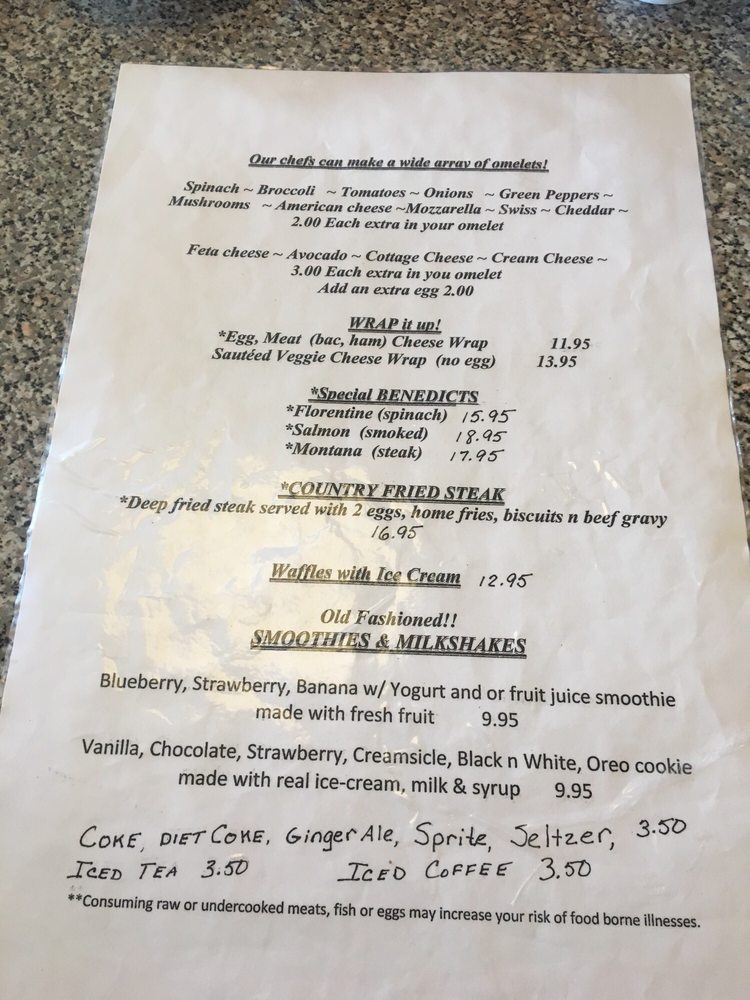 Our chefs can make a wide array of omelets!
Spinach ~ Broccoli ~ Tomatoes ~ Onions ~ Green Peppers ~
Mushrooms ~ American cheese ~Mozzarella ~ Swiss ~ Cheddar ~
2.00 Each extra in your omelet
Feta cheese ~ Avocado ~ Cottage Cheese ~ Cream Cheese ~
3.00 Each extra in you omelet
Add an extra egg 2.00
WRAP it up!
*Egg, Meat (bac, ham) Cheese Wrap 11.95
Sautéed Veggie Cheese Wrap (no egg) 13.95
*Special BENEDICTS
*Florentine (spinach) 15.95
*Salmon (smoked) 18.95
*Montana (steak) 17.95
*COUNTRY FRIED STEAK
*Deep fried steak served with 2 eggs, home fries, biscuits n beef gravy
16.95
Waffles with Ice Cream 12.95
Old Fashioned!!
SMOOTHIES & MILKSHAKES
Blueberry, Strawberry, Banana w/ Yogurt and or fruit juice smoothie
made with fresh fruit 9.95
Vanilla, Chocolate, Strawberry, Creamsicle, Black n White, Oreo cookie
made with real ice-cream, milk & syrup 9.95
COKE, DIET COKE, Ginger Ale, Sprite, Seltzer, 3.50
ICED TEA 3.50 ICED COFFEE 3.50
**Consuming raw or undercooked meats, fish or eggs may increase your risk of food borne illnesses.